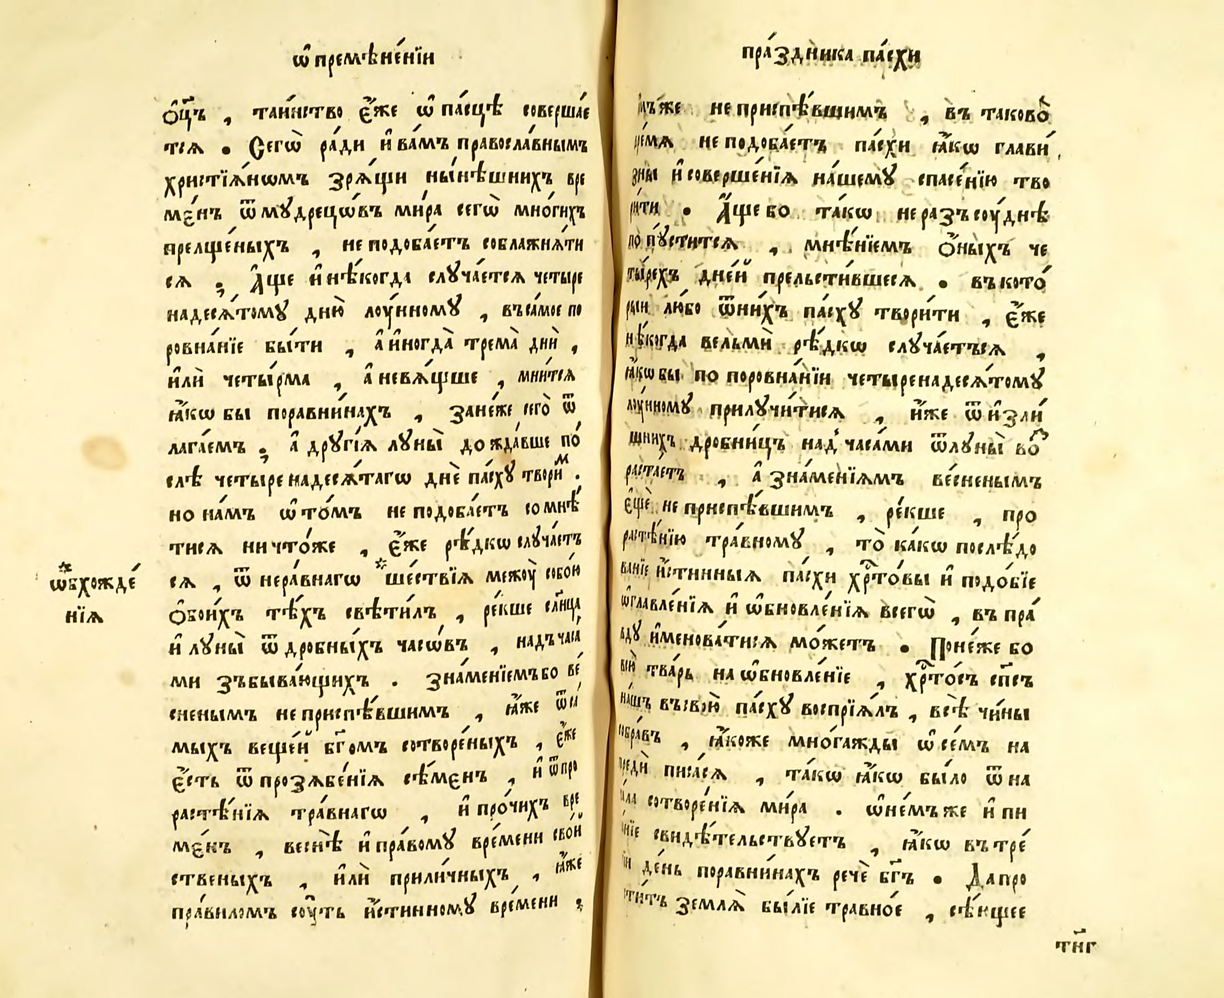 ѡ҆ премѣне́нїи
ѻ҆ц҃ъ , таи́нство є҆́же ѡ҆ па́сцѣ соверша́е
тсѧ . Сегѡ̀ ра́ди и҆ ва́мъ правосла́внымъ
христїѧ́нѡмъ зрѧ́щи ны́нѣшнихъ вре
ме́нъ ѿ мудрецѡ́въ ми́ра сегѡ̀ мно́гихъ
прелще́ныхъ , не подоба́етъ соблажнѧ́ти
сѧ ; А҆́ще и҆ нѣ́когда случа́етсѧ четыре
надесѧ́тому дню̀ лоу́нному , въ са́мое по
ровна́нїе бы́ти , а҆ и҆ногда̀ трема̀ днѝ ,
и҆лѝ четы́рма , а҆ невѧ́щше , мни́тсѧ
ꙗ҆́кѡ бы поравни́нахъ , зане́же сего̀ ѿ
лага́емъ ; а҆ другі́ѧ луны̀ дожда́вше по́
слѣ четыренадесѧ́тагѡ днѐ па́сху твори́м .
но на́мъ ѡ҆ то́мъ не подоба́етъ сомнѣ
тисѧ ничто́же , є҆́же рѣ́дкѡ случа́етъ
сѧ , ѿ нера́внагѡ * ше́ствїѧ межоу̀ собо́ю
ѻ҆бои́хъ тѣ́хъ свѣти́лъ , ре́кше сл҃нца
и҆ луны̀ ѿ дро́бныхъ часѡ́въ , надъ часа́
ми зъбыва́ющихъ . зна́менїемъ бо ве́
сненымъ не приспѣ́вшимъ , ꙗ҆́же ѿ са́
мыхъ веще́й бг҃омъ сотворе́ныхъ , є҆́же
є҆́сть ѿ прозѧбе́нїѧ сѣ́менъ , и҆ ѿ про
расте́нїѧ тра́внагѡ , и҆ про́чихъ вре
ме́нъ , веснѣ̀ и҆ пра́вому вре́мени свои́
ственыхъ , и҆лѝ прили́чныхъ , ꙗ҆́же
пра́виломъ соу́ть и҆́стинному вре́мени ;
* ѡ҆бхожде́
нїѧ
пра́здника па́схи
не приспѣ́вшимъ , въ таково̀
не подоба́етъ па́схи ꙗ҆́кѡ глави́
зны и҆ соверше́нїѧ на́шему спасе́нїю тво
ри́ти . А҆́ще бо та́кѡ неразъсоу́днѣ
попꙋ́стится , мнѣ́нїемъ ѻ҆́ныхъ че
ты́рехъ дне́й прельсти́вшеся . въ кото́
рыи лю́бо ѿ ни́хъ па́сху твори́ти , є҆́же
нѣ́когда вельмѝ рѣ́дкѡ случа́етъся ,
ꙗ҆́кѡ бы по поровна́нїи четыренадесѧ́тому
лоу́нному прилучи́тися , и҆́же ѿ и҆зли́
шнихъ дробни́цъ над̾ часа́ми ѿ луны̀ во́з
раста́етъ , а҆ зна́менїямъ ве́сненымъ
є҆щѐ не приспѣ́вшимъ , ре́кше , про
расте́нїю тра́вному , то̀ ка́кѡ послѣ́до
ванїе и҆́стинныя па́схи хр҃то́вы и҆ подо́бїе
ѡ҆главле́нїѧ и҆ ѡ҆бновле́нїѧ всегѡ̀ , въ пра́
вду и҆менова́тися мо́жетъ . Поне́же бо
всю̀ тва́рь на ѡ҆бновле́нїе , хр҃то́съ сп҃съ
на́шъ въ свою̀ па́сху воспрїѧ́лъ , всѣ̀ чи́ны
собра́въ , ꙗ҆́коже мно́гажды ѡ҆ се́мъ на
преди́ писа́ся , та́кѡ ꙗ҆́кѡ бы́ло ѿ на
ча́ла сотворе́нїѧ ми́ра . ѡ҆ не́мъ же и҆ пи
са́нїе свидѣ́тельствуетъ , ꙗ҆́кѡ въ тре́
тїи де́нь поравни́нахъ речѐ бг҃ъ . Да про
расти́тъ землѧ̀ бы́лїе травно́е , сѣ́ющее
тн҃г